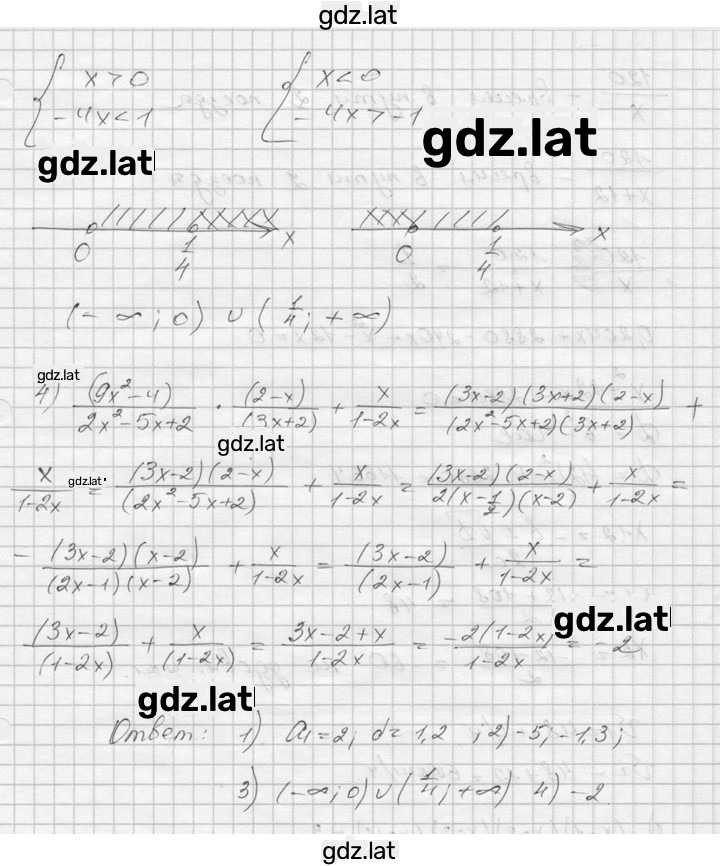 gdz.lat
{ x > 0    { x < 0
{ -4x < 1    { -4x > -1
gdz.lat    gdz.lat
0    1/4    x    0    1/4    x
(-∞; 0) ∪ (1/4; +∞)
gdz.lat
4) (9x²-4)/(2x²-5x+2) · (2-x)/(3x+2) + x/(1-2x) = (3x-2)(3x+2)(2-x)/(2x²-5x+2)(3x+2) +
gdz.lat
x/(1-2x) = (3x-2)(2-x)/(2x²-5x+2) + x/(1-2x) = (3x-2)(2-x)/2(x-1/2)(x-2) + x/(1-2x) =
gdz.lat
- (3x-2)(x-2)/(2x-1)(x-2) + x/(1-2x) = (3x-2)/(2x-1) + x/(1-2x) =
gdz.lat
(3x-2)/(1-2x) + x/(1-2x) = (3x-2+x)/(1-2x) = -2(1-2x)/(1-2x) = -2
gdz.lat
Ответ: 1) a₁=2; d=1,2 ; 2) -5; -1,3;
3) (-∞; 0) ∪ (1/4; +∞) 4) -2
gdz.lat